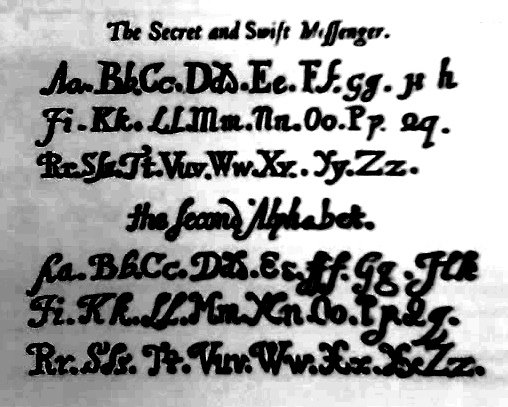 The Secret and Swift Meſſenger.
Aa. Bb Cc. Dd. Ee. Ff. Gg. H h
Ji. Kk. LL. Mm. Nn. Oo. Pp. Qq.
Rr. Sſs. Tt. Vuv. Ww. Xx. Yy. Zz.
the ſecond Alphabet.
Aa. Bb. Cc. Dd. Ee. Ff. Gg. Hh
Ji. Kk. LL. Mm. Nn Oo. Pp. Qq.
Rr. Sſs. Tt. Vuv. Ww. Xx. Yy. Zz.